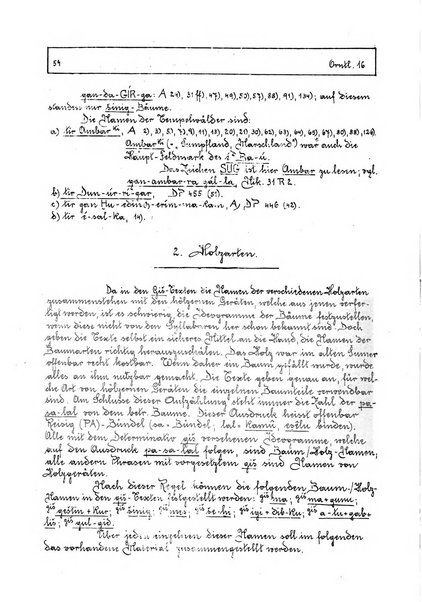 54 Orntl. 16
gan-da-GÍR-ga: A 21), 31 ff), 47), 49), 50), 57), 88), 91), 134); auf diesem
standen nur šinig-Bäume.
Die Namen der Tempelwälder sind:
a) tir Ambar ki, A 2), 3), 5), 7), 9), 11), 13), 20), 21), 30), 62), 64), 65), 67), 80), 88), 126).
Ambar ki (=, Sumpfland, Marschland) war auch die
Haupt-Feldmark des é Ba-ú.
Das Zeichen SUG ist hier Ambar zu lesen; vgl.
gan-ambar-ra gál-la, Nik. 31 R 2.
b) tir Dun-úr-ri-gar, DP 455 (51).
c) tir gan
d) tir é-sal-ka, 14).
2. Holzarten.
Da in den Giš-Texten die Namen der verschiedenen Holzarten
zusammenstehen mit den hölzernen Geräten, welche aus jenen verfer-
tigt worden, ist es schwierig, die Ideogramme der Bäume festzustellen,
wenn diese nicht von den Syllabaren her schon bekannt sind. Doch
geben die Texte selbst ein sicheres Mittel an die Hand, die Namen der
Baumarten richtig herauszuschälen. Das Holz war im alten Sumer
offenbar recht kostbar. Wenn daher ein Baum gefällt wurde, wurde
alles an ihm nutzbar gemacht. Die Texte geben genau an, für wel-
che Art von hölzernen Geräten die einzelnen Baumteile verwendbar
sind. Am Schlusse dieser Aufzählung steht immer die Zahl der pa-
sa-lal von dem betr. Baume. Dieser Ausdruck heisst offenbar
Reisig (PA)-Bündel (sa = Bündel, lal = kamû, esêlu binden).
Alle mit dem Determinativ giš versehenen Ideogramme, welche
auf den Ausdruck pa-sa-lal folgen, sind Baum-/Holz-Namen,
alle andern Phrasen mit vorgesetztem giš sind Namen von
Holzgeräten.
Nach dieser Regel können die folgenden Baum-/Holz-
Namen in den giš-Texten festgestellt werden: giš ḫa; giš ma+gunu;
giš geštin+kur; giš šinig; giš mes; giš še-ḫi; giš igi+dib-ku; giš a-lu+gab+
liš; giš gul-gid.
Über jeden einzelnen dieser Namen soll im folgenden
das vorhandene Material zusammengestellt werden.